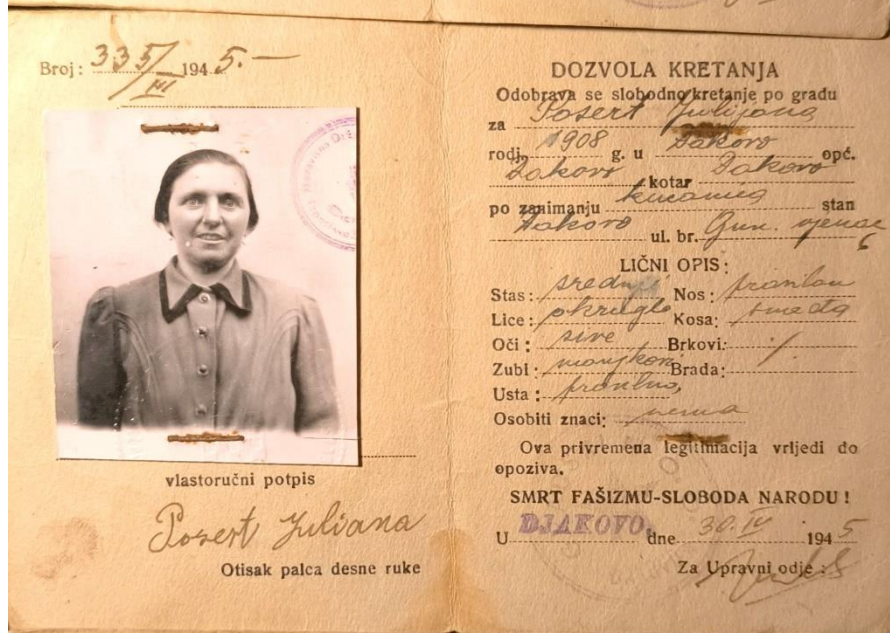 Broj: 335/III 1945.—
vlastoručni potpis
Posert Juliana
Otisak palca desne ruke
DOZVOLA KRETANJA
Odobrava se slobodno kretanje po gradu
za Posert Julijana
rodj. 1908 g. u Đakovo opć.
Đakovo kotar Đakovo
po zanimanju kućanica stan
Đakovo ul. br. Gun. vjenac 6
LIČNI OPIS:
Stas: srednji Nos: pravilan
Lice: okruglo Kosa: smeđa
Oči: sive Brkovi: /.
Zubi: manjkavi Brada:
Usta: pravilna,
Osobiti znaci: nema
Ova privremena legitimacija vrijedi do
opoziva.
SMRT FAŠIZMU-SLOBODA NARODU!
U DJAKOVO, dne 30. IV 1945
Za Upravni odje :